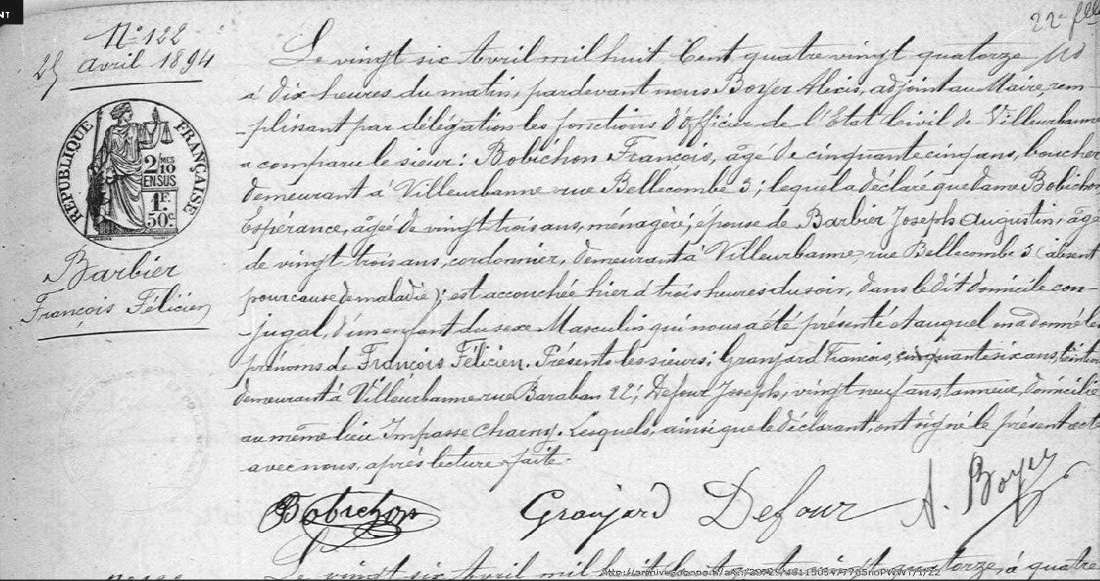 NT
22 f
N° 122
25 avril 1894
RÉPUBLIQUE FRANÇAISE
2/10 MES
EN SUS
1F.
50c.
Barbier
François Félicien
Le vingt six Avril mil huit Cent quatre vingt quatorze
à dix heures du matin, pardevant nous Boyer Alexis, adjoint au Maire, rem-
-plissant par délégation les fonctions d'Officier de l'Etat Civil de Villeurbanne
a comparu le sieur: Bobichon François, âgé de cinquante cinq ans, boucher
demeurant à Villeurbanne rue Bellecombe 3; lequel a déclaré que dame Bobichon
Espérance, âgée de vingt trois ans, ménagère, épouse de Barbier Joseph Augustin, âgé
de vingt trois ans, cordonnier, demeurant à Villeurbanne, rue Bellecombe 3 (absent
pour cause de maladie); est accouchée hier à trois heures du soir, dans le dit domicile con-
jugal, d'un enfant du sexe Masculin qui nous a été présenté et auquel on a donné les
prénoms de François Félicien. Présents les sieurs: Granjard François, cinquante six ans,
demeurant à Villeurbanne rue Baraban 22; Defour Joseph, vingt neuf ans, tanneur, domicilié
au même lieu Impasse Charny. Lesquels, ainsi que le déclarant, ont signé le présent acte
avec nous, après lecture faite.
Bobichon Granjard Defour A. Boyer
Le vingt six Avril mil huit Cent quatre vingt quatorze, à quatre